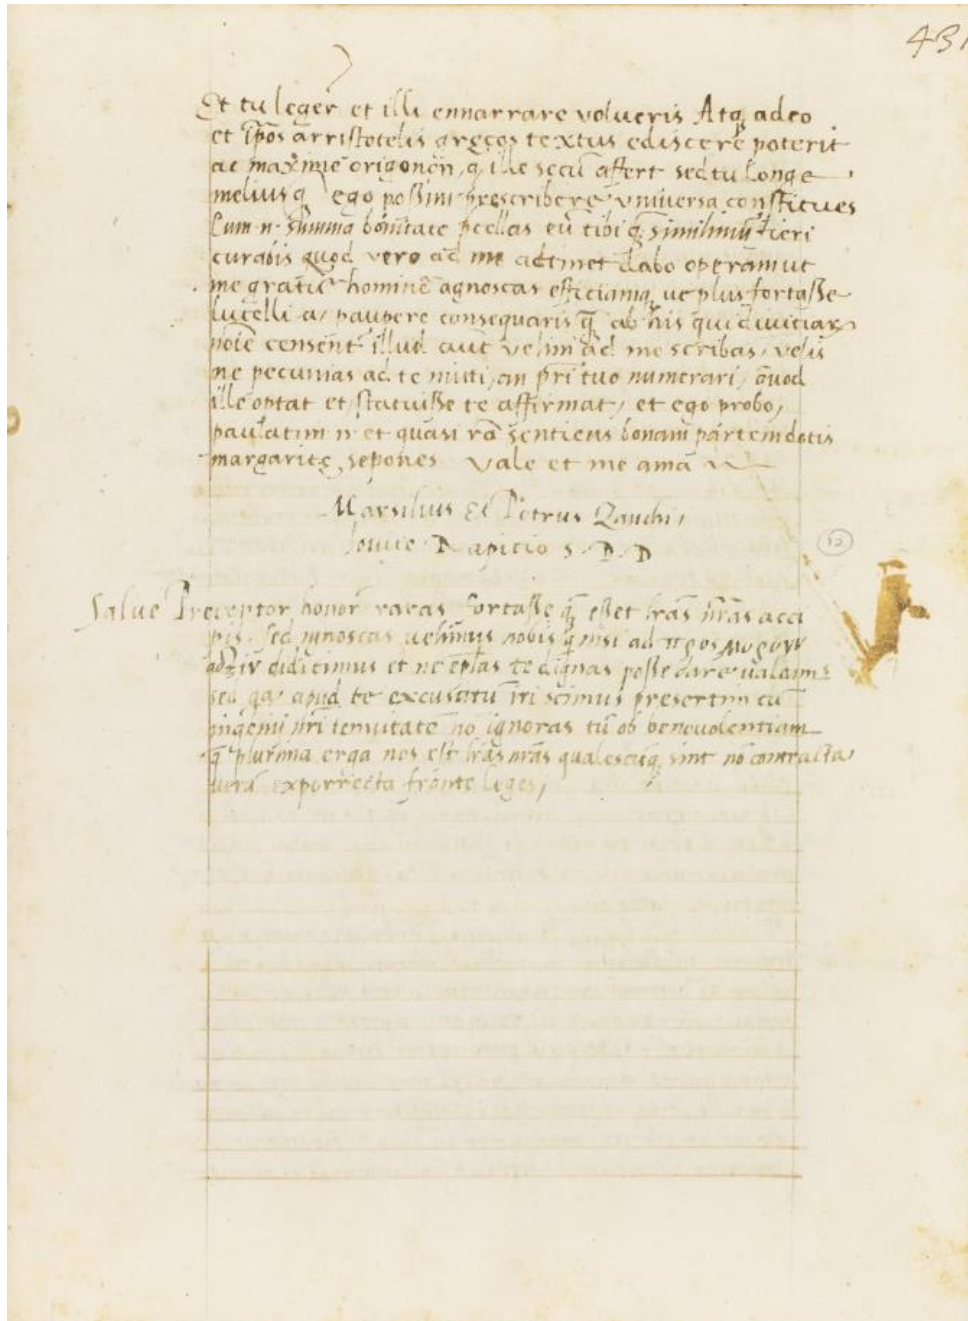 431
Et tu leger et illi ennarrare volueris Atq adeo
et ipõs arristotelis greços textus ediscere poterit
ac max̃ime q ille secũ affert sed tu longe
melius q̃ ego possim prescribere vniversa constitues
Cum n summa bonitate eũ tibi q̃ fieri
curabis quod vero ad me adtinet dabo operam ut
me gratũ hominẽ agnoscas efficiamq ut plus fortasse
lucelli a paupere consequaris q̃ ab his qui divitiar
illud aut velim ad me scribas, velis
ne pecunias ad te mitti, an pr̃i tuo numerari, quod
ille optat et statuisse te affirmat, et ego probo,
paulatim n et quasi nõ sentiens bonam partem dotis
margarite sepones Vale et me ama
Marsilius et Petrus Zanchi,
Iovite Rapicio S. P. D
52
Salue Preceptor honor raras fortasse q̃ esset l̃ras nr̃as acci
pis, sed ignoscas velimus nobis q̃ nisi ad
didicimus et ne te dignas posse dare
sed qa apud te excusatũ iri scimus presertim cũ
ingenii nr̃i tenuitatẽ nõ ignoras tũ ob benevolentiam
q̃ plurima erga nos est l̃ras nr̃as qualescũq sint nõ contracta
verũ exporrecta fronte leges,